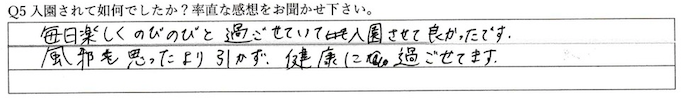 Q5 入園されて如何でしたか？率直な感想をお聞かせ下さい。
毎日楽しくのびのびと過ごせていて入園させて良かったです。
風邪も思ったより引かず、健康に過ごせてます。